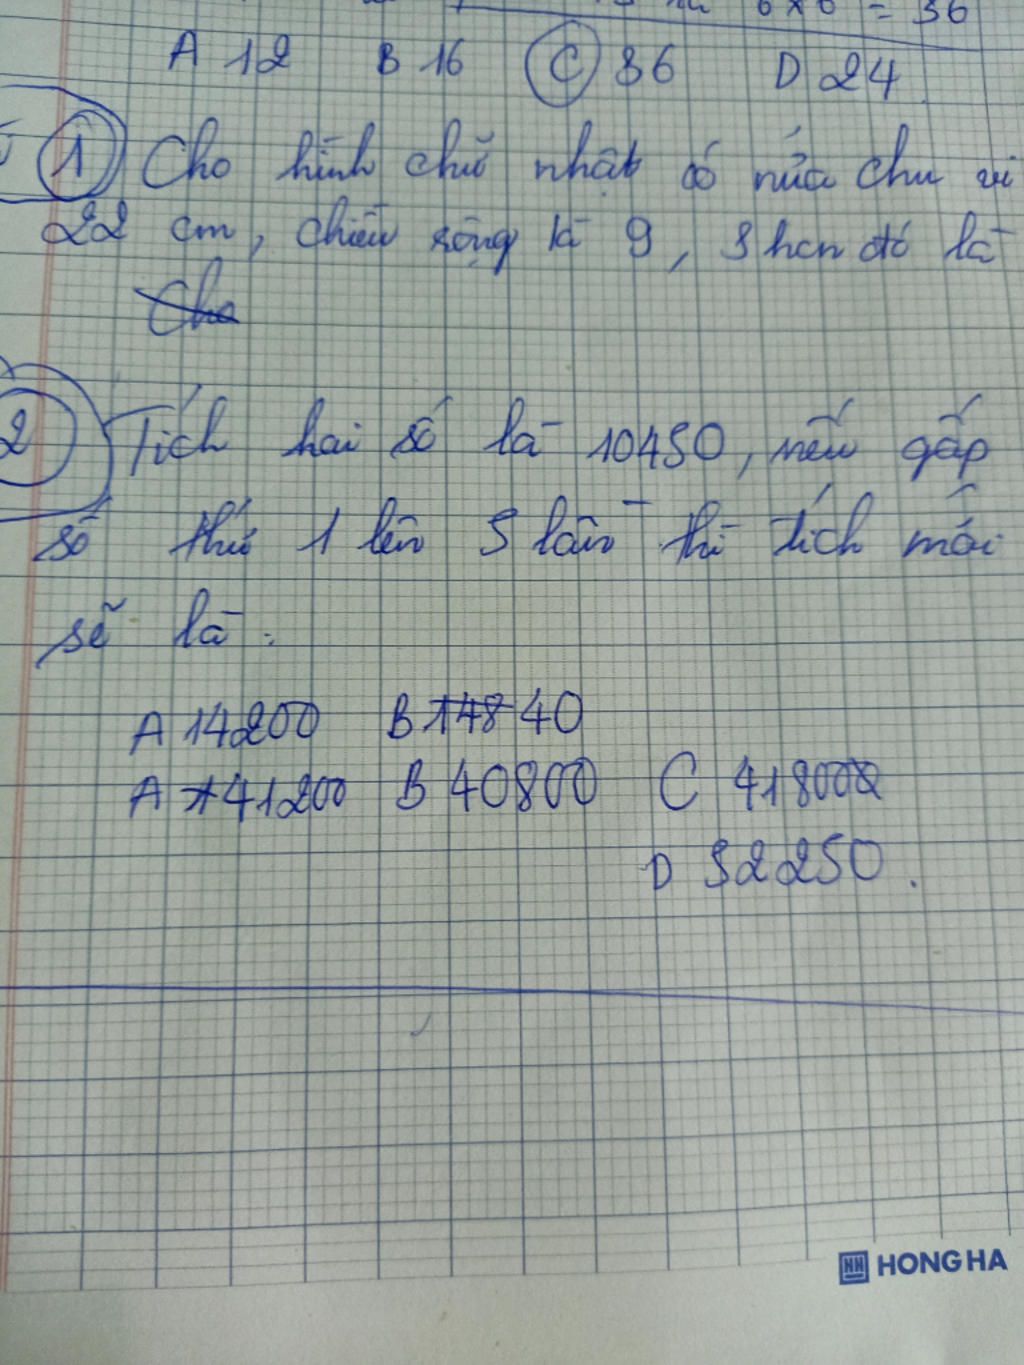 6x6 = 36
A 12 B 16 C 36 D 24
1 Cho hình chữ nhật có nửa chu vi
22 cm, chiều rộng là 9, Shcn đó là
2 Tích hai số là 10450, nếu gấp
số thứ 1 lên 5 lần thì tích mới
sẽ là:
A 14200 B 14840
A 41200 B 40800 C 41800
D 52250.
HONG HA